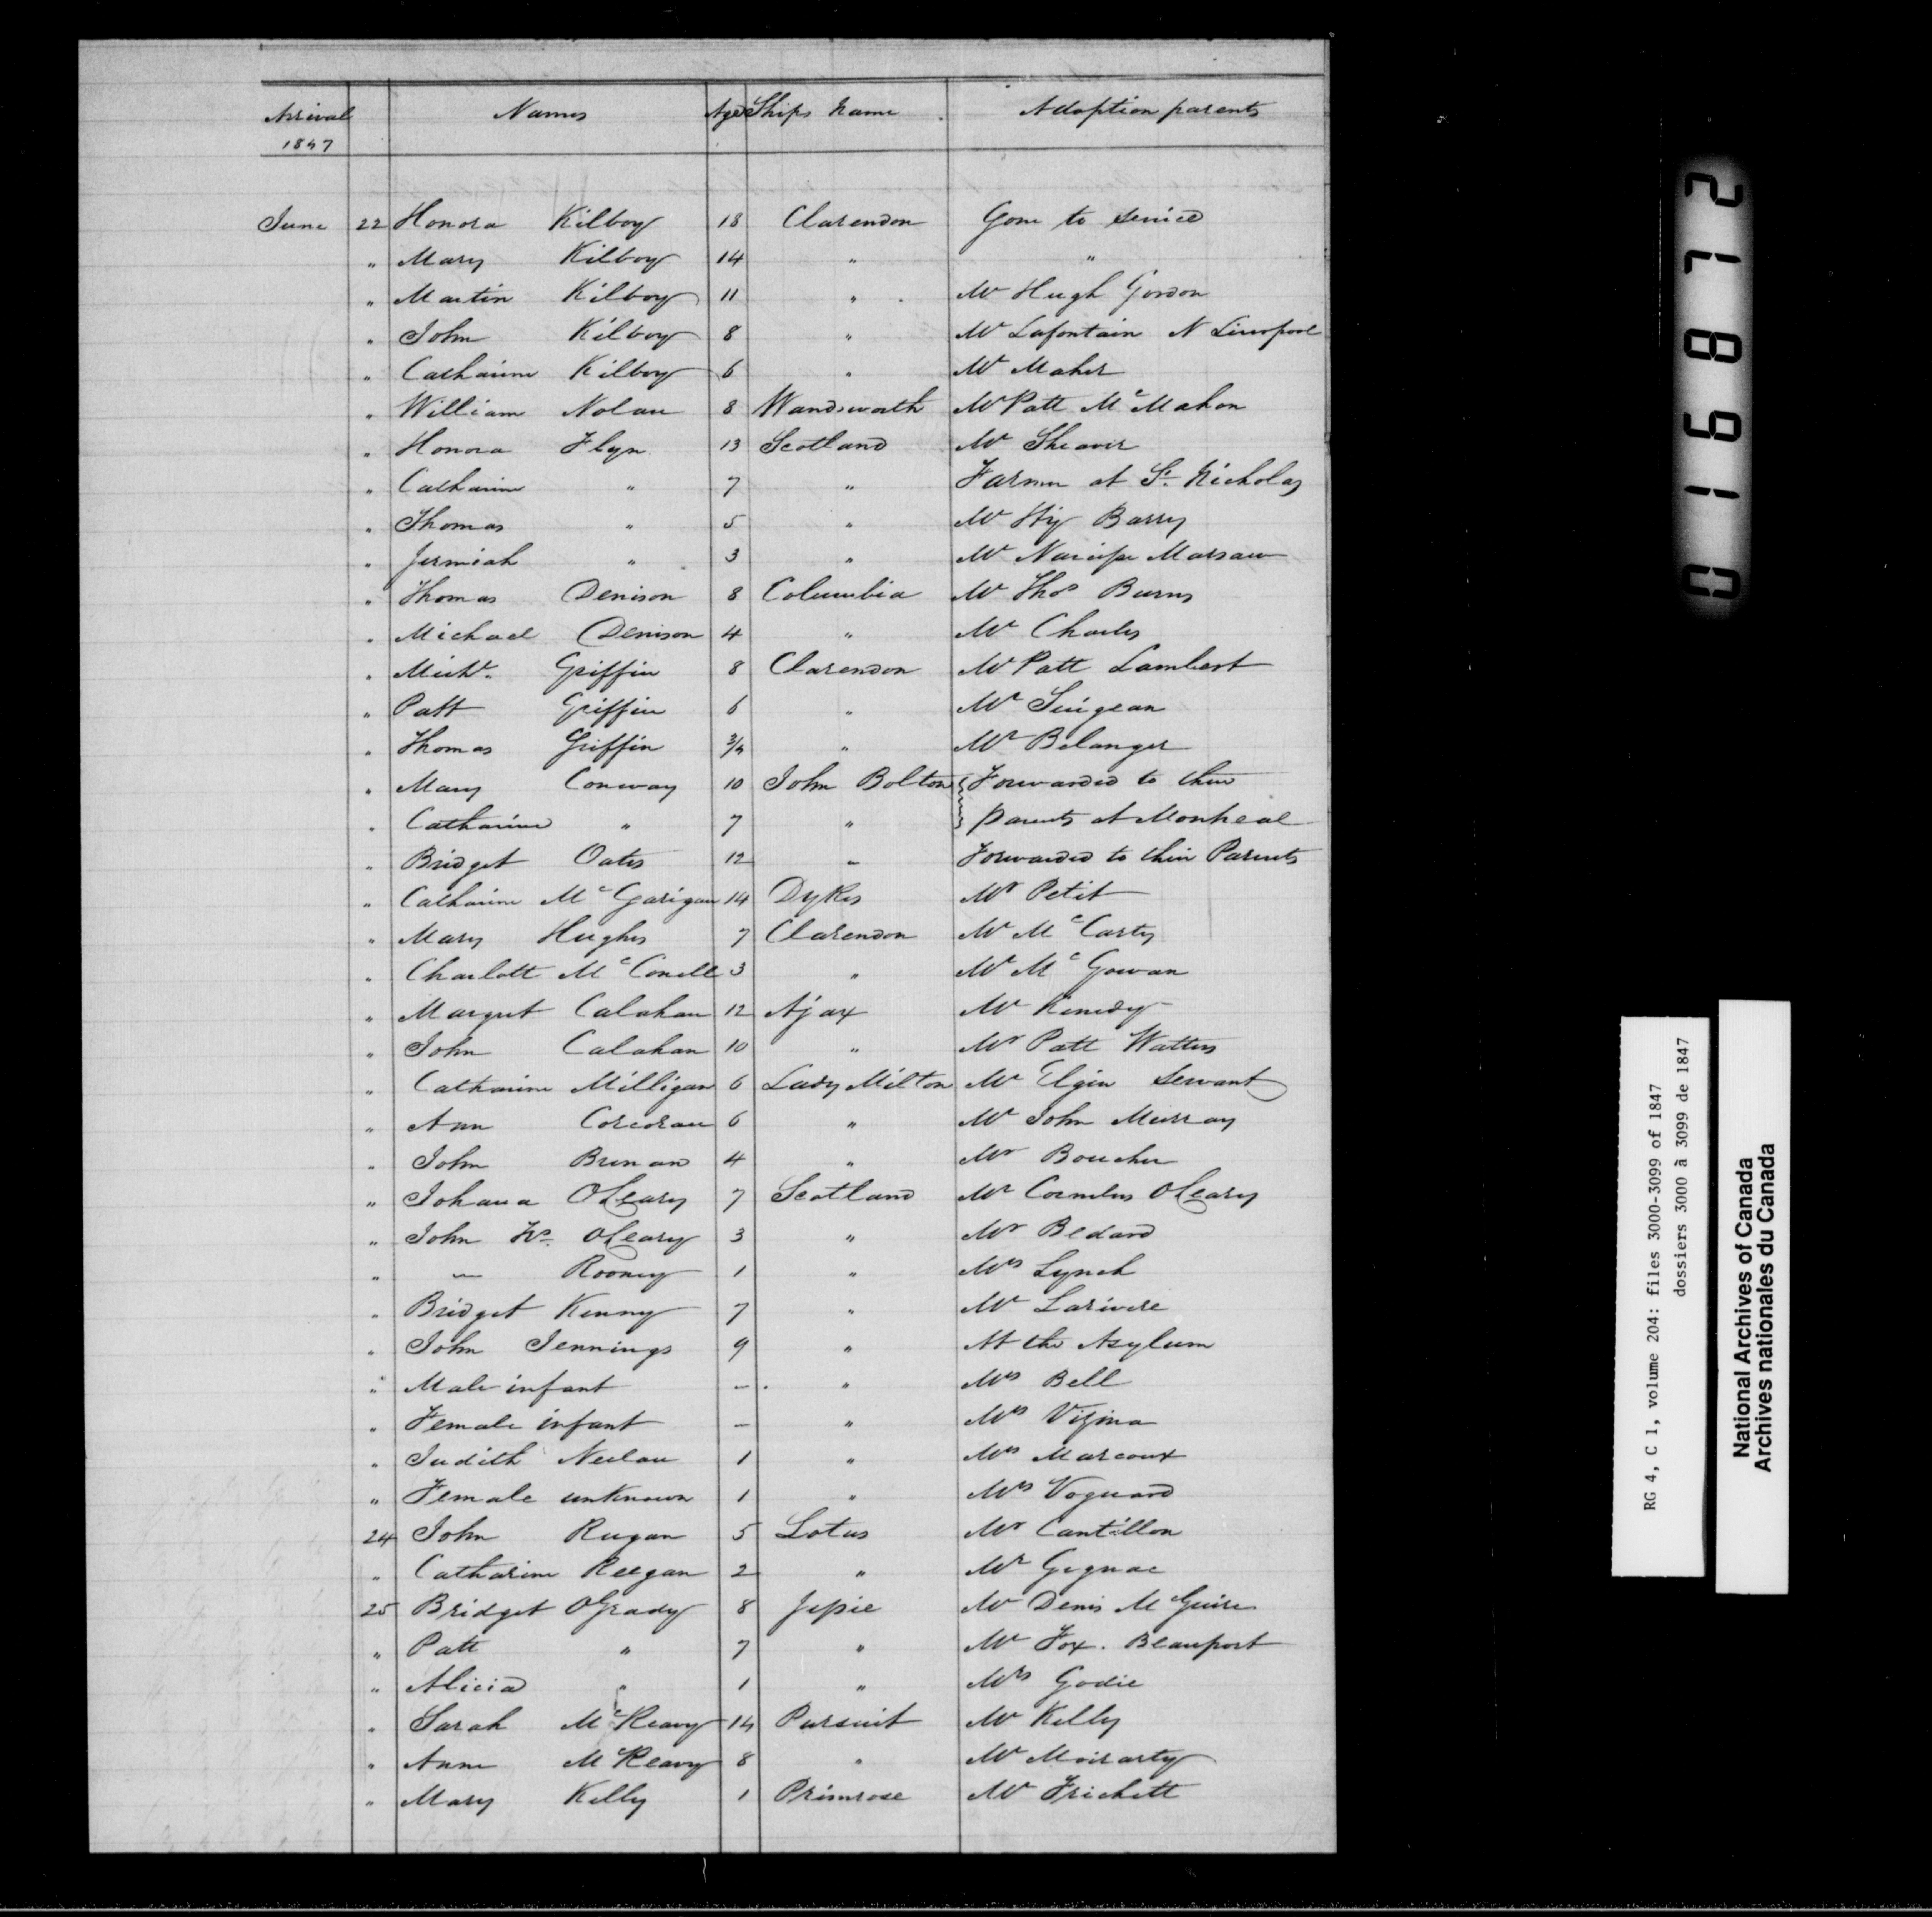 Arrival Names Age Ships Name Adoption parents
1847
June 22 Honora Kilboy 18 Clarendon Gone to service
" Mary Kilboy 14 " "
" Martin Kilboy 11 " Mr Hugh Gordon
" John Kilboy 8 " Mr Lafontain N Liverpool
" Catharine Kilboy 6 " Mr Maher
" William Nolan 8 Wandsworth Mr Patt McMahon
" Honora Flyn 13 Scotland Mr Sheaver
" Catharine " 7 " Farmer at St. Nicholas
" Thomas " 5 " Mr Hy Barry
" Jermiah " 3 " Mr Marsaw
" Thomas Denison 8 Columbia Mr Thos Burns
" Michael Denison 4 " Mr Charles
" Michl. Griffin 8 Clarendon Mr Patt Lambert
" Patt Griffin 6 " Mr
" Thomas Griffin 3/4 " Mr Belanger
" Mary Conway 10 John Bolton Forwarded to their
" Catharine " 7 " parents at Montreal
" Bridget Oates 12 " Forwarded to their Parents
" Catharine McGarigan 14 Dykes Mr Petit
" Mary Hughes 7 Clarendon Mr McCarty
" Charlott McConell 3 " Mr McGowan
" Margret Calahan 12 Ajax Mr Kenedy
" John Calahan 10 " Mr Patt Watters
" Catharine Milligan 6 Lady Milton Mr Elgin Servant
" Ann Corcoran 6 " Mr John Murray
" John Brenan 4 " Mr Boucher
" Johana OLeary 7 Scotland Mr Cornelus OLeary
" John OLeary 3 " Mr Bedard
" — Rooney 1 " Mrs Lynch
" Bridget Kenny 7 " Mr Larivere
" John Jennings 9 " At the Asylum
" Male infant — " Mrs Bell
" Female infant — " Mrs Vizina
" Judith Neilan 1 " Mrs Marcoux
" Female unknown 1 " Mrs Voguard
24 John Reegan 5 Lotus Mr Cantillon
" Catharine Reegan 2 " Mr Gignac
25 Bridget OGrady 8 Jessie Mr Denis McGuire
" Patt " 7 " Mr Fox. Beauport
" Alicia " 1 " Mrs Godie
" Sarah McReavy 14 Pursuit Mr Kelly
" Anne McReavy 8 " Mr Moirarty
" Mary Kelly 1 Primrose Mr Frichett
016872
RG 4, C 1, volume 204: files 3000-3099 of 1847
dossiers 3000 à 3099 de 1847
National Archives of Canada
Archives nationales du Canada